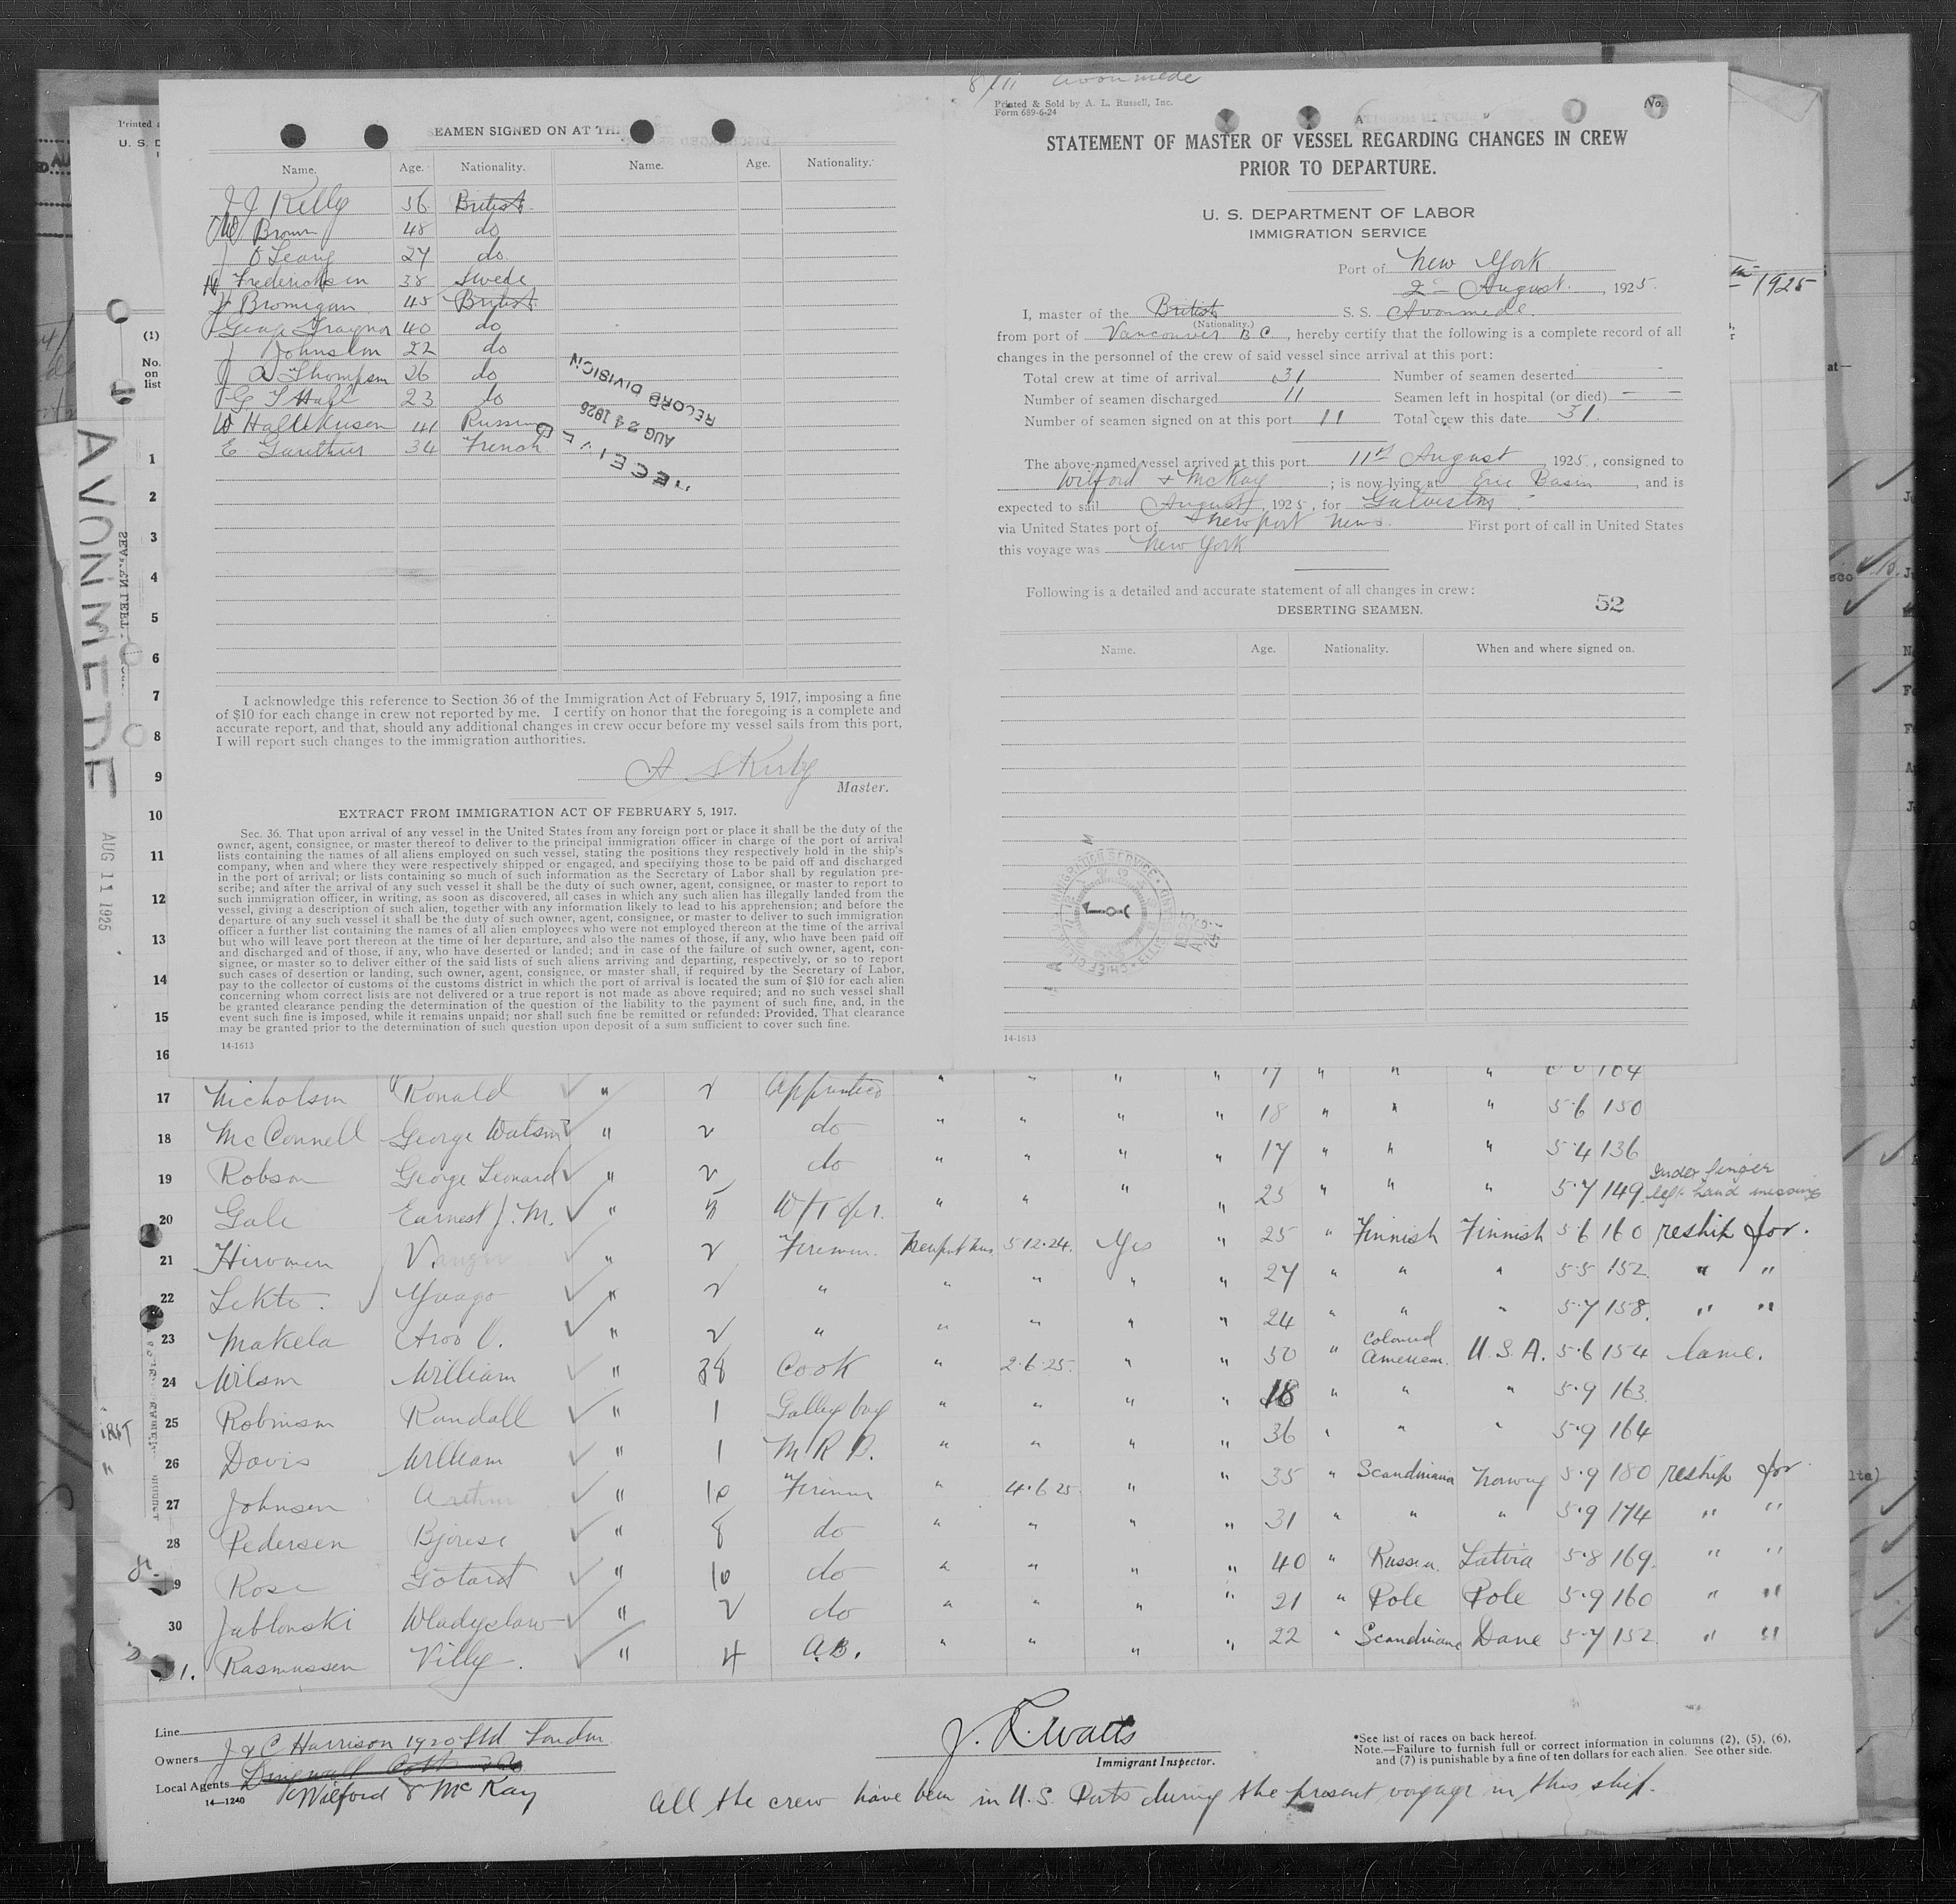 8/11 Avonmede
EAMEN SIGNED ON AT TH
Name. Age. Nationality. Name. Age. Nationality.
J J Kelly 36 British
W Brown 48 do
J O'Leary 27 do
N Frederichsen 38 Swede
J Bromigan 45 British
George Traynor 40 do
J Johnston 22 do
J A Thompson 26 do
G T Hall 23 do
W 41 Russian
E 34 French
RECORD DIVISION
AUG 24 1925
I acknowledge this reference to Section 36 of the Immigration Act of February 5, 1917, imposing a fine
of $10 for each change in crew not reported by me. I certify on honor that the foregoing is a complete and
accurate report, and that, should any additional changes in crew occur before my vessel sails from this port,
I will report such changes to the immigration authorities.
A S Kirby
Master.
EXTRACT FROM IMMIGRATION ACT OF FEBRUARY 5, 1917.
Sec. 36. That upon arrival of any vessel in the United States from any foreign port or place it shall be the duty of the
owner, agent, consignee, or master thereof to deliver to the principal immigration officer in charge of the port of arrival
lists containing the names of all aliens employed on such vessel, stating the positions they respectively hold in the ship's
company, when and where they were respectively shipped or engaged, and specifying those to be paid off and discharged
in the port of arrival; or lists containing so much of such information as the Secretary of Labor shall by regulation pre-
scribe; and after the arrival of any such vessel it shall be the duty of such owner, agent, consignee, or master to report to
such immigration officer, in writing, as soon as discovered, all cases in which any such alien has illegally landed from the
vessel, giving a description of such alien, together with any information likely to lead to his apprehension; and before the
departure of any such vessel it shall be the duty of such owner, agent, consignee, or master to deliver to such immigration
officer a further list containing the names of all alien employees who were not employed thereon at the time of the arrival
but who will leave port thereon at the time of her departure, and also the names of those, if any, who have been paid off
and discharged and of those, if any, who have deserted or landed; and in case of the failure of such owner, agent, con-
signee, or master so to deliver either of the said lists of such aliens arriving and departing, respectively, or so to report
such cases of desertion or landing, such owner, agent, consignee, or master shall, if required by the Secretary of Labor,
pay to the collector of customs of the customs district in which the port of arrival is located the sum of $10 for each alien
concerning whom correct lists are not delivered or a true report is not made as above required; and no such vessel shall
be granted clearance pending the determination of the question of the liability to the payment of such fine, and, in the
event such fine is imposed, while it remains unpaid; nor shall such fine be remitted or refunded: Provided, That clearance
may be granted prior to the determination of such question upon deposit of a sum sufficient to cover such fine.
14-1613
Printed & Sold by A. L. Russell, Inc.
Form 689-6-24
No.
STATEMENT OF MASTER OF VESSEL REGARDING CHANGES IN CREW
PRIOR TO DEPARTURE.
U. S. DEPARTMENT OF LABOR
IMMIGRATION SERVICE
Port of New York
2 August, 1925.
I, master of the British S. S. Avonmede
(Nationality.)
from port of Vancouver B C, hereby certify that the following is a complete record of all
changes in the personnel of the crew of said vessel since arrival at this port:
Total crew at time of arrival 31 Number of seamen deserted
Number of seamen discharged 11 Seamen left in hospital (or died) — —
Number of seamen signed on at this port 11 Total crew this date 31.
The above-named vessel arrived at this port 11th August, 1925, consigned to
Wilford & McKay; is now lying at Erie Basin, and is
expected to sail August, 1925, for Galveston
via United States port of Newport News. First port of call in United States
this voyage was New York
Following is a detailed and accurate statement of all changes in crew:
DESERTING SEAMEN.
52
Name. Age. Nationality. When and where signed on.
14-1613
Printed
U. S. D
(1)
No.
on
list
AVONMEDE
AUG 11 1925
1925
1
2
3
4
5
6
7
8
9
10
11
12
13
14
15
16
17 Nicholson Ronald " 2 Apprentice " " " " 17 " " " 164
18 McConnell George Watson " 2 do " " " " 18 " " " 5·6 150
19 Robson George Leonard " 2 do " " " " 17 " " " 5·4 136
20 Gale Earnest J. M. " 5 W/T opr. " " " " 25 " " " 5·7 149 Index finger left hand missing
21 Hirvonen " 2 Fireman Newport News 5·12·24. Yes " 25 " Finnish Finnish 5·6 160 reship for.
22 Lekto. Yuago " 2 " " " " " 27 " " " 5·5 152 " "
23 Makela Arvo O. " 2 " " " " " 24 " " " 5·7 158. " "
24 Wilson William " 38 Cook " 2·6·25. " " 50 " Coloured American. U.S.A. 5·6 154 lame.
25 Robinson Randall " 1 Galley boy " " " " 18 " " " 5·9 163
26 Davis William " 1 M.R.B. " " " " 36 " " " 5·9 164
27 Johnsen Arthur " 10 Fireman " 4·6·25 " " 35 " Scandinavia Norway 5·9 180 reship for
28 Pedersen Bjorese " 8 do " " " " 31 " " " 5·9 174 " "
29 Rose Gotard " 10 do " " " " 40 " Russia. Latvia 5·8 169. " "
30 Jablonski Wladyslaw " 2 do " " " " 21 " Pole Pole 5·9 160 " "
31. Rasmussen Villy. " 4 A.B. " " " " 22 " Scandinavia Dane 5·7 152. " "
Line
Owners J & C Harrison 1920 Ltd London
Local Agents
Wilford & McKay
14—1240
J. R. Watts
Immigrant Inspector.
*See list of races on back hereof.
Note.—Failure to furnish full or correct information in columns (2), (5), (6),
and (7) is punishable by a fine of ten dollars for each alien. See other side.
All the crew have been in U.S. Ports during the present voyage in this ship.